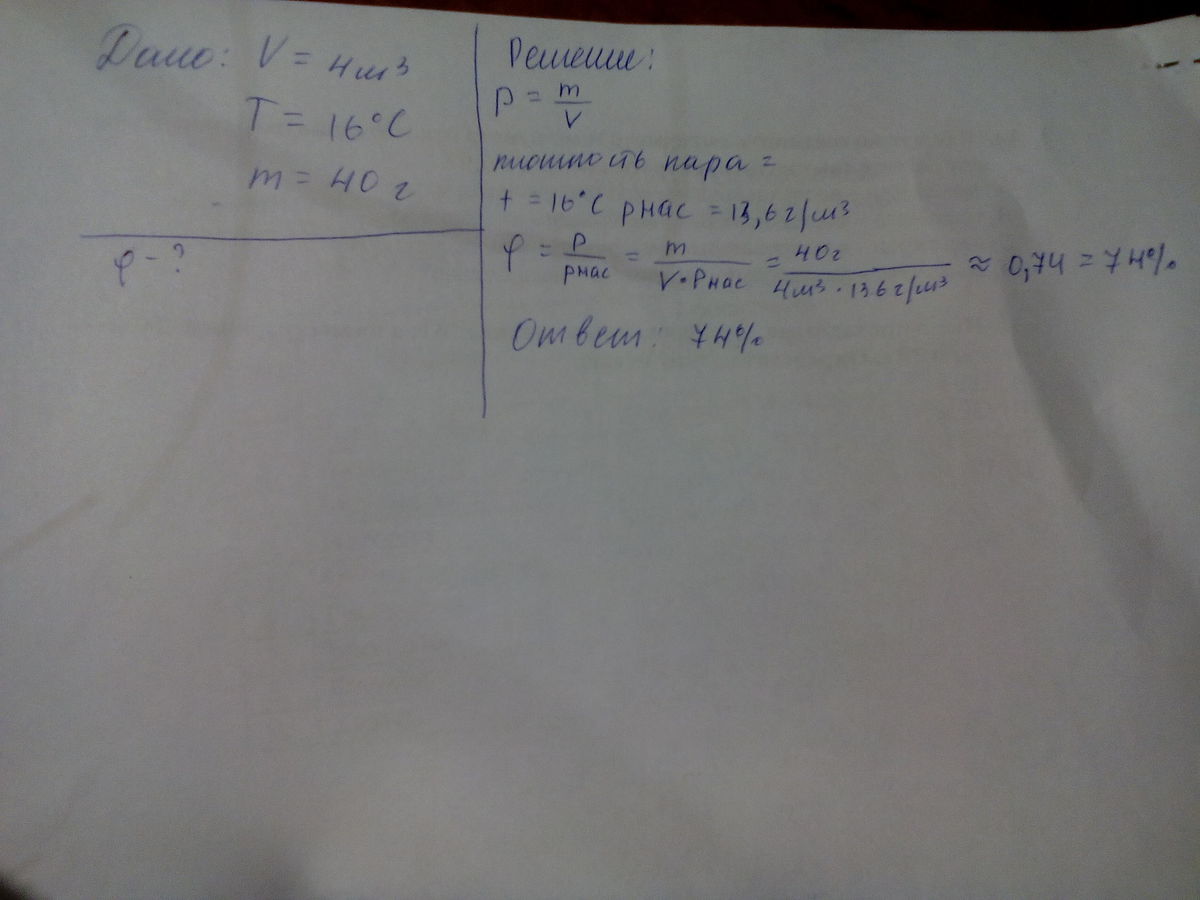 Дано: V = 4 м³
T = 16°C
m = 40 г
φ - ?
Решение:
p = m/V
плотность пара =
t = 16°C pнас = 13,6 г/м³
φ = p/pнас = m/V•Pнас = 40г/4м³ · 136 г/м³ ≈ 0,74 = 74%
Ответ: 74%